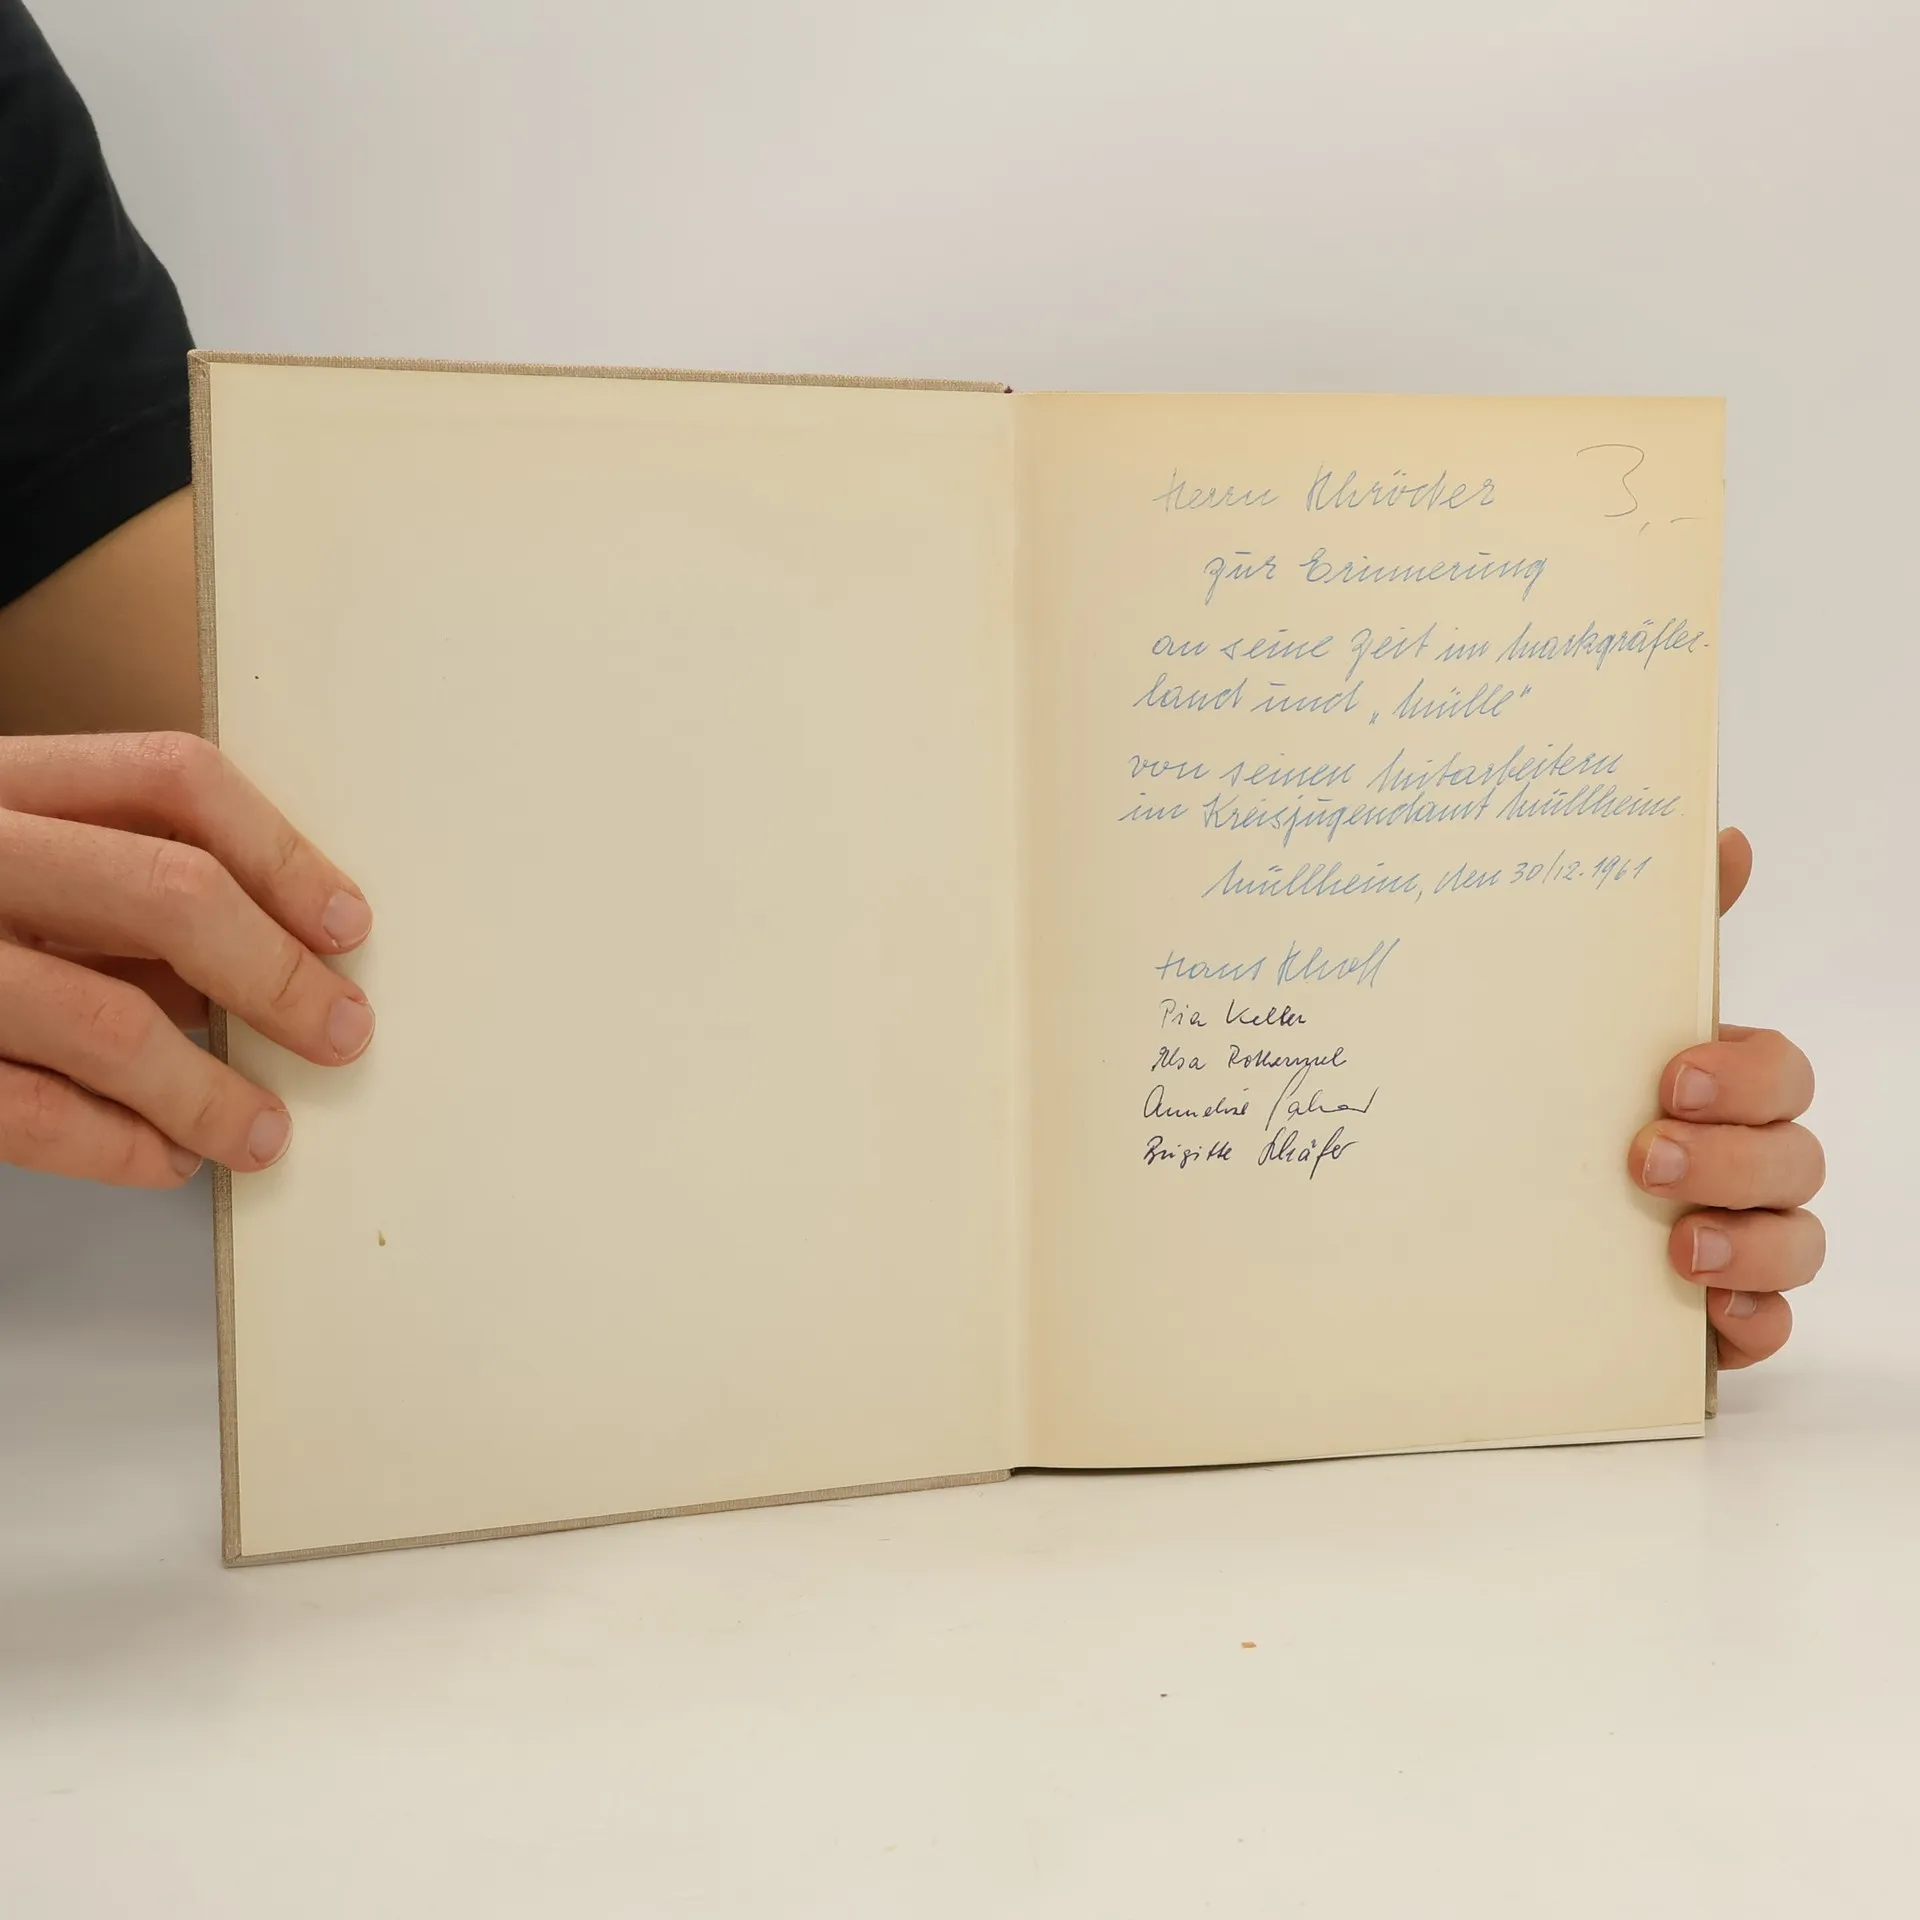 Herrn Schröder
3,-
zur Erinnerung
an seine Zeit im Markgräfler-
land und „Mülle"
von seinen Mitarbeitern
im Kreisjugendamt Müllheim.
Müllheim, den 30/12.1961
Hans
Pia Keller
Elsa Rothermel
Anneliese
Brigitte Schäfer